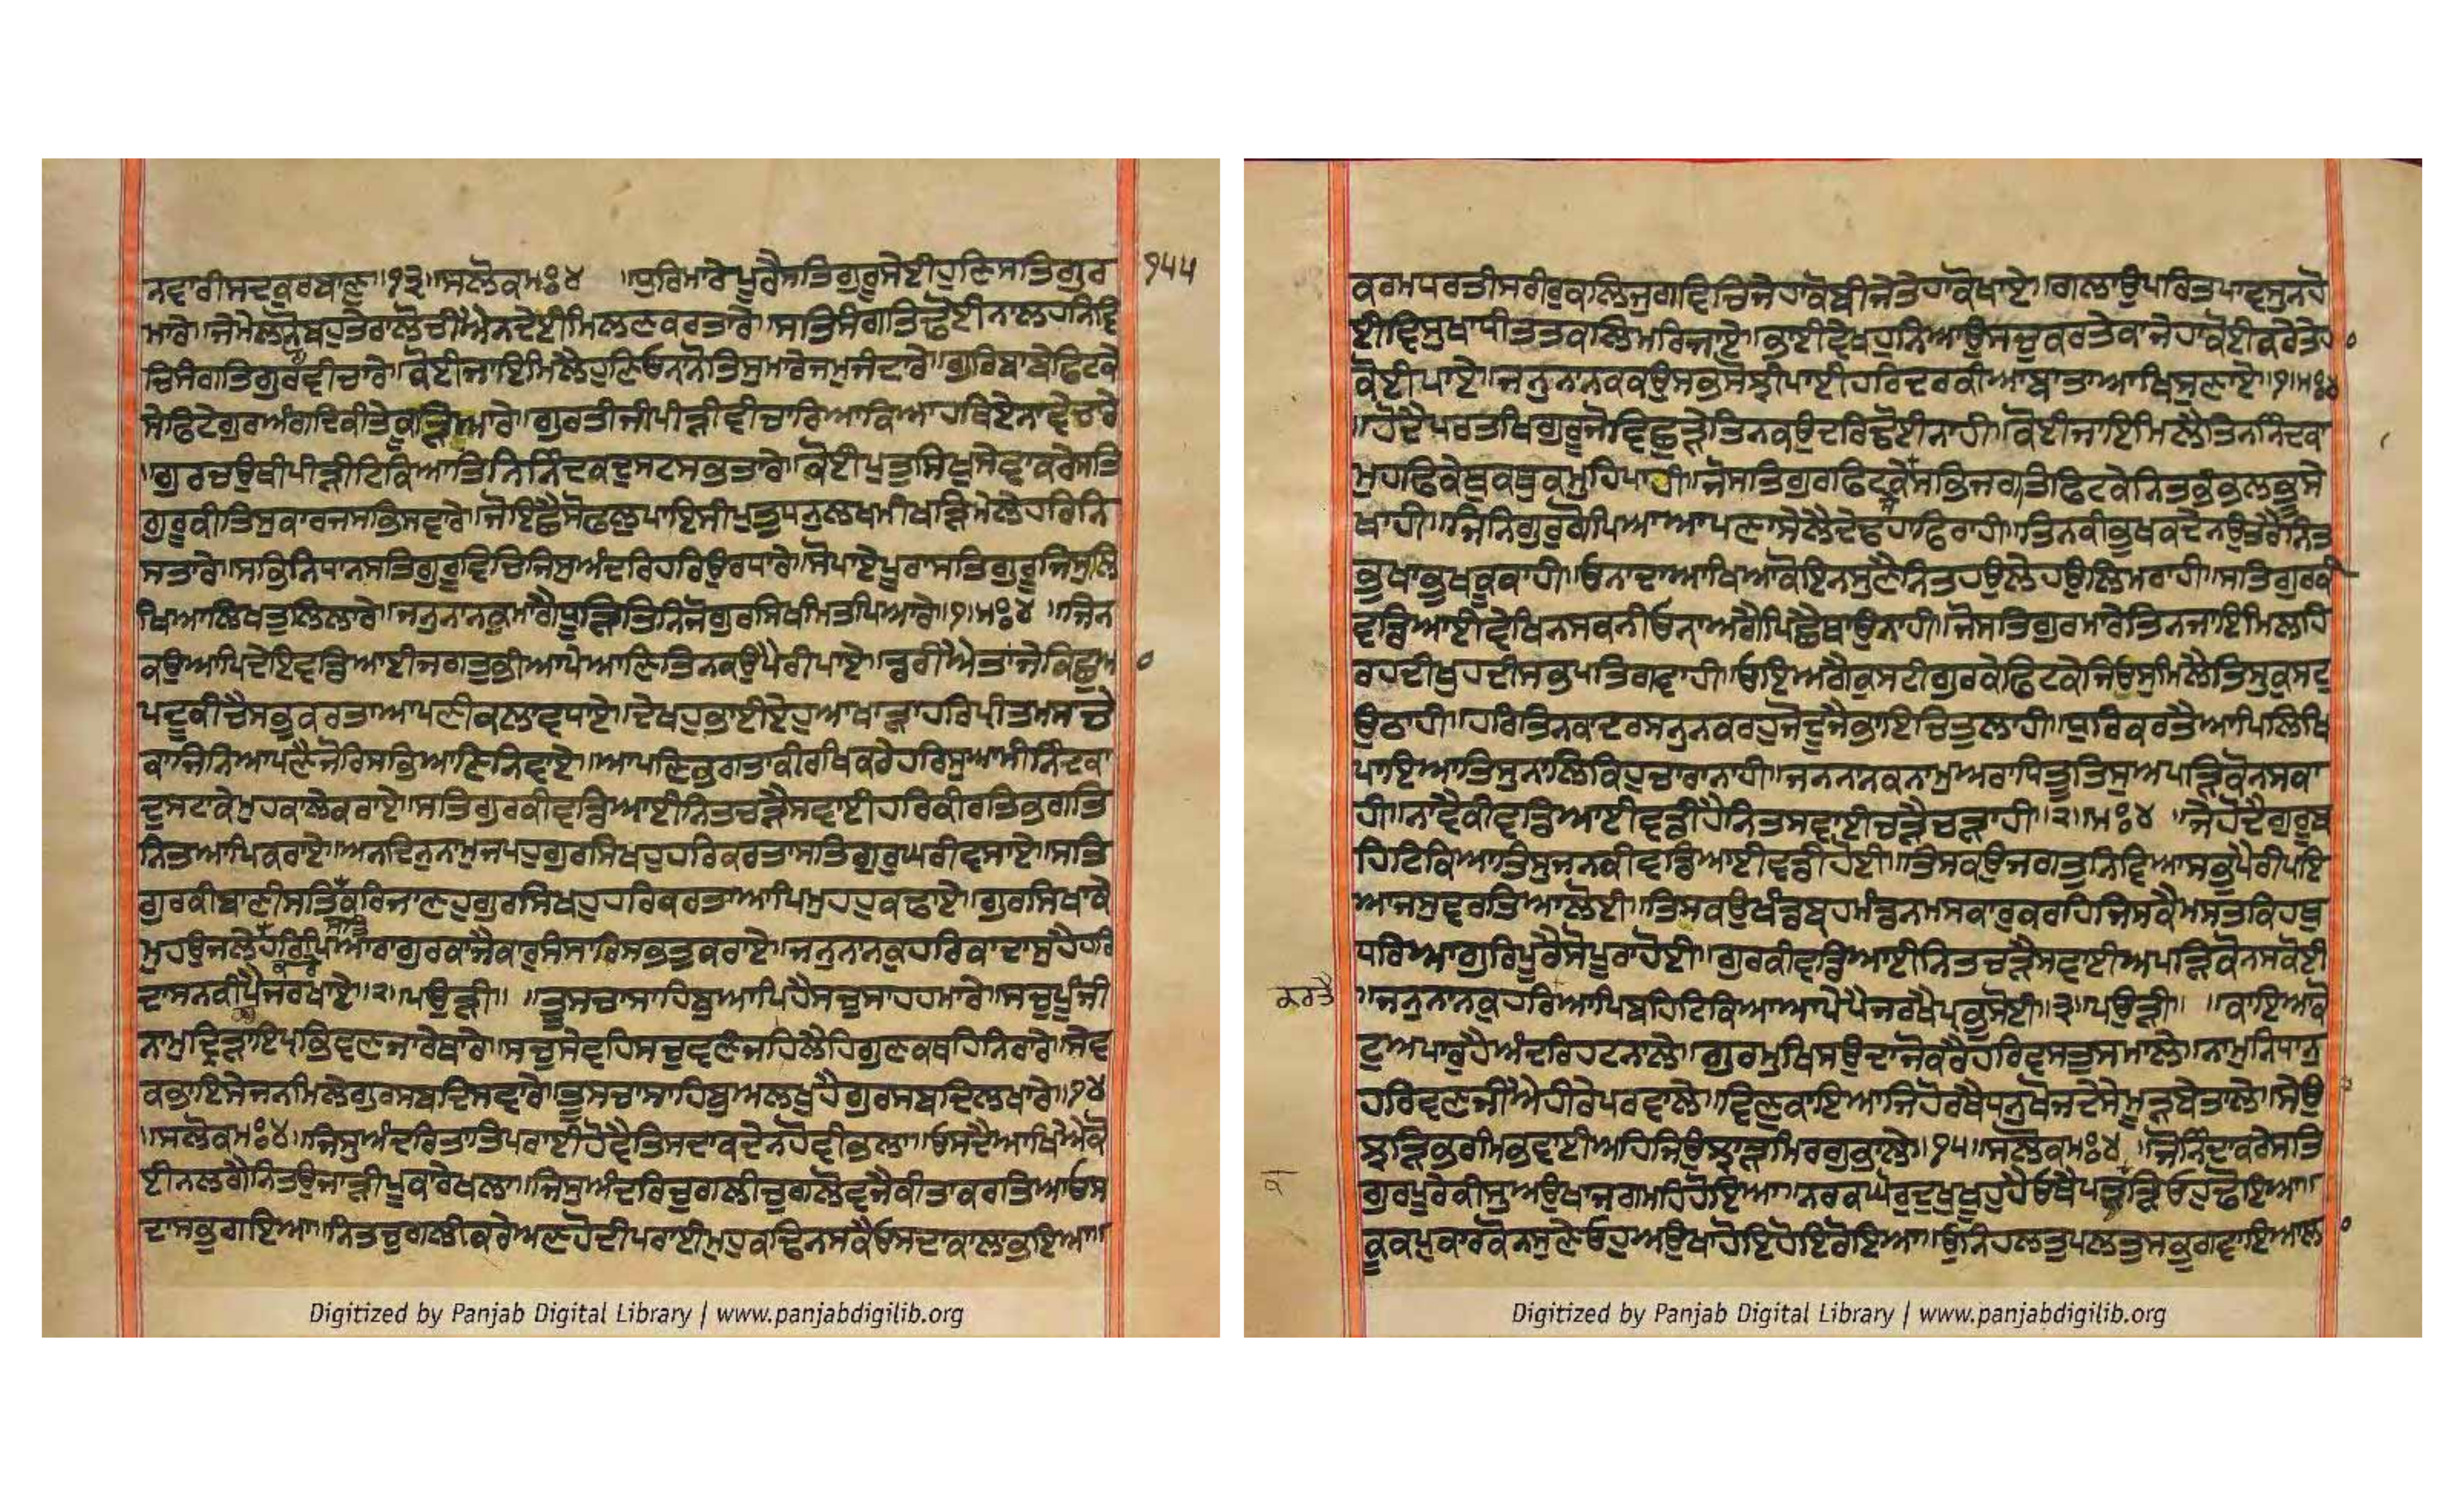 ਨਵਾਰੀਸਦਕੁਰਬਾਣੁ॥੧੩॥ਸਲੋਕਮਃ੪ ॥ਧੁਰਿਮਾਰੇਪੂਰੈਸਤਿਗੁਰੂਸੇਈਹੁਣਿਸਤਿਗੁਰ
੧੫੫
ਮਾਰੇ॥ਜੇਮੇਲਣਨੋਬਹੁਤੇਰਾਲੋਚੀਐਨਦੇਈਮਿਲਣਕਰਤਾਰੇ॥ਸਤਿਸੰਗਤਿਢੋਈਨਾਲਹਨਿਵਿ
ਚਿਸੰਗਤਿਗੁਰਵੀਚਾਰੇ॥ਕੋਈਜਾਇਮਿਲੈਹੁਣਿਓਨਾਨੋਤਿਸੁਮਾਰੇਜਮੁਜੰਦਾਰੇ॥ਗੁਰਿਬਾਬੇਫਿਟਕੇ
ਸੇਫਿਟੇਗੁਰਅੰਗਦਿਕੀਤੇਕੂੜਿਆਰੇ॥ਗੁਰਤੀਜੀਪੀੜੀਵੀਚਾਰਿਆਕਿਆਹਥਿਏਨਾਵੇਚਾਰੇ
॥ਗੁਰਚਉਥੀਪੀੜੀਟਿਕਿਆਤਿਨਿਨਿੰਦਕਦੁਸਟਸਭਤਾਰੇ॥ਕੋਈਪੁਤੁਸਿਖੁਸੇਵਾਕਰੇਸਤਿ
ਗੁਰੂਕੀਤਿਸੁਕਾਰਜਸਭਿਸਵਾਰੇ॥ਜੋਇਛੈਸੋਫਲੁਪਾਇਸੀਪੁਤੁਧਨੁਲਖਮੀਖੜਿਮੇਲੇਹਰਿਨਿ
ਸਤਾਰੇ॥ਸਭਿਨਿਧਾਨਸਤਿਗੁਰੂਵਿਚਿਜਿਸੁਅੰਦਰਿਹਰਿਉਰਧਾਰੇ॥ਸੋਪਾਏਪੂਰਾਸਤਿਗੁਰੂਜਿਸੁਲਿ
ਖਿਆਲਿਖਤੁਲਿਲਾਰੇ॥ਜਨੁਨਾਨਕੁਮਾਗੈਧੂੜਿਤਿਨਜੋਗੁਰਸਿਖਮਿਤਪਿਆਰੇ॥੧॥ਮਃ੪ ॥ਜਿਨ
ਕਉਆਪਿਦੇਇਵਡਿਆਈਜਗਤੁਭੀਆਪੇਆਣਿਤਿਨਕਉਪੈਰੀਪਾਏ॥ਡਰੀਐਤਾਂਜੇਕਿਛੁਆ
ਪਦੂਕੀਚੈਸਭੁਕਰਤਾਆਪਣੀਕਲਾਵਧਾਏ॥ਦੇਖਹੁਭਾਈਏਹੁਅਖਾੜਾਹਰਿਪ੍ਰੀਤਮਸਚੇ
ਕਾਜਿਨਿਆਪਣੈਜੋਰਿਸਭਿਆਣਿਨਿਵਾਏ॥ਆਪਣਿਭਗਤਾਕੀਰਖਕਰੇਹਰਿਸੁਆਮੀਨਿੰਦਕਾ
ਦੁਸਟਾਕੇਮੁਹਕਾਲੇਕਰਾਏ॥ਸਤਿਗੁਰਕੀਵਡਿਆਈਨਿਤਚੜੈਸਵਾਈਹਰਿਕੀਰਤਿਭਗਤਿ
ਨਿਤਆਪਿਕਰਾਏ॥ਅਨਦਿਨੁਨਾਮੁਜਪਹੁਗੁਰਸਿਖਹੁਹਰਿਕਰਤਾਸਤਿਗੁਰੁਘਰੀਵਸਾਏ॥ਸਤਿ
ਗੁਰਕੀਬਾਣੀਸਤਿਕਰਿਜਾਣਹੁਗੁਰਸਿਖਹੁਹਰਿਕਰਤਾਆਪਿਮੁਹਹੁਕਢਾਏ॥ਗੁਰਸਿਖਾਕੇ
ਮੁਹਉਜਲੇਹਰਿਪਿਆਰਾਗੁਰਕਾਜੈਕਾਰੁਸੰਸਾਰਿਸਭਤੁਕਰਾਏ॥ਜਨੁਨਾਨਕੁਹਰਿਕਾਦਾਸੁਹੈਹਰਿ
ਦਾਸਨਕੀਪੈਜਰਖਾਏ॥੨॥ਪਉੜੀ॥ ॥ਤੂਸਚਾਸਾਹਿਬੁਆਪਿਹੈਸਚੁਸਾਹਹਮਾਰੇ॥ਸਚੁਪੂੰਜੀ
ਨਾਮੁਦ੍ਰਿੜਾਇਪ੍ਰਭਵਣਜਾਰੇਥਾਰੇ॥ਸਚੁਸੇਵਹਿਸਚੁਵਣੰਜਿਲੈਹਿਗੁਣਕਥਹਨਿਰਾਰੇ॥ਸੇਵ
ਕਭਾਇਸੇਜਨਮਿਲੇਗੁਰਸਬਦਿਸਵਾਰੇ॥ਤੂਸਚਾਸਾਹਿਬੁਅਲਖੁਹੈਗੁਰਸਬਦਿਲਖਾਰੇ॥੧੪
॥ਸਲੋਕਮਃ੪॥ਜਿਸੁਅੰਦਰਿਤਾਤਿਪਰਾਈਹੋਵੈਤਿਸਦਾਕਦੇਨਹੋਵੀਭਲਾ॥ਓਸਦੈਆਖਿਐਕੋ
ਈਨਲਗੈਨਿਤਓਜਾੜੀਪੂਕਾਰੇਖਲਾ॥ਜਿਸੁਅੰਦਰਿਚੁਗਲੀਚੁਗਲੋਵਜੈਕੀਤਾਕਰਤਿਆਓਸ
ਦਾਸਭੁਗਇਆ॥ਨਿਤਚੁਗਲੀਕਰੇਅਣਹੋਦੀਪਰਾਈਮੁਹੁਕਢਿਨਸਕੈਓਸਦਾਕਾਲਾਭਇਆ॥
Digitized by Panjab Digital Library | www.panjabdigilib.org
ਕਰਮਧਰਤੀਸਰੀਰੁਕਲਿਜੁਗਵਿਚਿਜੇਹਾਕੋਬੀਜੇਤੇਹਾਕੋਖਾਏ॥ਗਲਾਉਪਰਿਤਪਾਵਸੁਨਹੋ
ਈਵਿਸੁਖਾਧੀਤਤਕਾਲਿਮਰਿਜਾਏ॥ਭਾਈਵੇਖਹੁਨਿਆਉਸਚੁਕਰਤੇਕਾਜੇਹਾਕੋਈਕਰੇਤੇਹਾ
ਕੋਈਪਾਏ॥ਜਨੁਨਾਨਕਕਉਸਭਸੋਝੀਪਾਈਹਰਿਦਰਕੀਆਬਾਤਾਆਖਿਸੁਣਾਏ॥੧॥ਮਃ੪
॥ਹੋਦੈਪਰਤਖਿਗੁਰੂਜੋਵਿਛੁੜੇਤਿਨਕਉਦਰਿਢੋਈਨਾਹੀ॥ਕੋਈਜਾਇਮਿਲੈਤਿਨਨਿੰਦਕਾ
ਮੁਹਫਿਕੇਥੁਕਥੁਕਮੁਹਿਪਾਹੀ॥ਜੋਸਤਿਗੁਰਫਿਟਕੇਸਭਿਜਗਤਿਫਿਟਕੇਨਿਤਭੰਭਲਭੂਸੇ
ਖਾਹੀ॥ਜਿਨਿਗੁਰੁਗੋਪਿਆਆਪਣਾਸੇਲੈਦੇਢਹਾਫਿਰਾਹੀ॥ਤਿਨਕੀਭੁਖਕਦੇਨਉਤਰੈਨਿਤ
ਭੁਖਾਭੁਖਕੂਕਾਹੀ॥ਓਨਾਦਾਆਖਿਆਕੋਇਨਸੁਣੈਨਿਤਹਉਲੇਹਉਲਿਮਰਾਹੀ॥ਸਤਿਗੁਰਕੀ
ਵਡਿਆਈਵੇਖਿਨਸਕਨੀਓਨਾਅਗੈਪਿਛੈਥਾਉਨਾਹੀ॥ਜੋਸਤਿਗੁਰਮਾਰੇਤਿਨਜਾਇਮਿਲਹਿ
ਰਹਦੀਖੁਹਦੀਸਭਪਤਿਗਵਾਹੀ॥ਓਇਅਗੈਕੁਸਟੀਗੁਰਕੇਫਿਟਕੇਜਿਓਸੁਮਿਲੈਤਿਸੁਕੁਸਟੁ
ਉਠਾਹੀ॥ਹਰਿਤਿਨਕਾਦਰਸਨੁਨਕਰਹੁਜੋਦੂਜੈਭਾਇਚਿਤੁਲਾਹੀ॥ਧੁਰਿਕਰਤੈਆਪਿਲਿਖਿ
ਪਾਇਆਤਿਸੁਨਾਲਿਕਿਹੁਚਾਰਾਨਾਹੀ॥ਜਨਨਾਨਕਨਾਮੁਅਰਾਧਿਤੂਤਿਸੁਅਪੜਿਕੋਨਸਕਾ
ਹੀ॥ਨਾਵੈਕੀਵਡਿਆਈਵਡੀਹੈਨਿਤਸਵਾਈਚੜੈਚੜਾਹੀ॥੨॥ਮਃ੪ ॥ਜੈਹੋਦੈਗੁਰੂਬ
ਹਿਟਿਕਿਆਤਿਸੁਜਨਕੀਵਡਿਆਈਵਡੀਹੋਈ॥ਤਿਸਕਉਜਗਤੁਨਿਵਿਆਸਭੁਪੈਰੀਪਇ
ਆਜਸੁਵਰਤਿਆਲੋਈ॥ਤਿਸਕਉਖੰਡਬ੍ਰਹਮੰਡਨਮਸਕਾਰੁਕਰਹਿਜਿਸਕੈਮਸਤਕਿਹਥੁ
ਧਰਿਆਗੁਰਿਪੂਰੈਸੋਪੂਰਾਹੋਈ॥ਗੁਰਕੀਵਡਿਆਈਨਿਤਚੜੈਸਵਾਈਅਪੜਿਕੋਨਸਕੋਈ
ਕਰਤੈ
॥ਜਨੁਨਾਨਕੁਹਰਿਆਪਿਬਹਿਟਿਕਿਆਆਪੇਪੈਜਰਖੈਪ੍ਰਭੁਸੋਈ॥੩॥ਪਉੜੀ॥ ॥ਕਾਇਆਕੋ
ਟੁਅਪਾਰੁਹੈਅੰਦਰਿਹਟਨਾਲੇ॥ਗੁਰਮੁਖਿਸਉਦਾਜੋਕਰੈਹਰਿਵਸਤੁਸਮਾਲੇ॥ਨਾਮੁਨਿਧਾਨੁ
ਹਰਿਵਣਜੀਐਹੀਰੇਪਰਵਾਲੇ॥ਵਿਣੁਕਾਇਆਜਿਹੋਰਥੈਧਨੁਖੋਜਦੇਸੇਮੂੜਬੇਤਾਲੇ॥ਸੇਉ
ਝੜਿਭਰਮਿਭਵਾਈਅਹਿਜਿਉਝਾੜਮਿਰਗੁਭਾਲੇ॥੧੫॥ਸਲੋਕਮਃ੪ ॥ਜੋਨਿੰਦਾਕਰੇਸਤਿ
ਗੁਰਪੂਰੇਕੀਸੁਅਉਖਾਜਗਮਹਿਹੋਇਆ॥ਨਰਕਘੋਰੁਦੁਖਖੂਹੁਹੈਓਥੈਪਕੜਿਓਹੁਢੋਇਆ॥
ਕੂਕਪੁਕਾਰਕੋਨਸੁਣੇਓਹੁਅਉਖਾਹੋਇਹੋਇਰੋਇਆ॥ਓਨਿਹਲਤੁਪਲਤੁਸਭੁਗਵਾਇਆਲਾ
Digitized by Panjab Digital Library | www.panjabdigilib.org